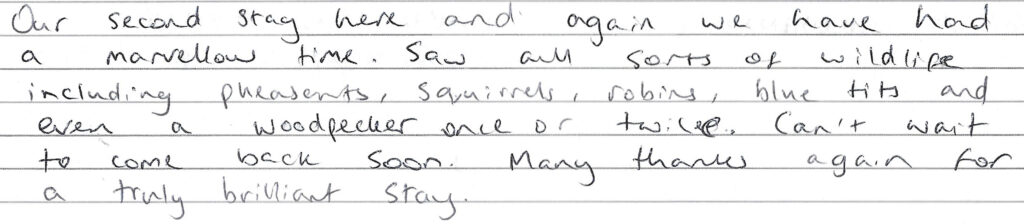 Our second stay here and again we have had
a marvellow time. Saw all sorts of wildlife
including pheasents, squirrels, robins, blue tits and
even a woodpecker once or twice. Can't wait
to come back soon. Many thanks again for
a truly brilliant stay.